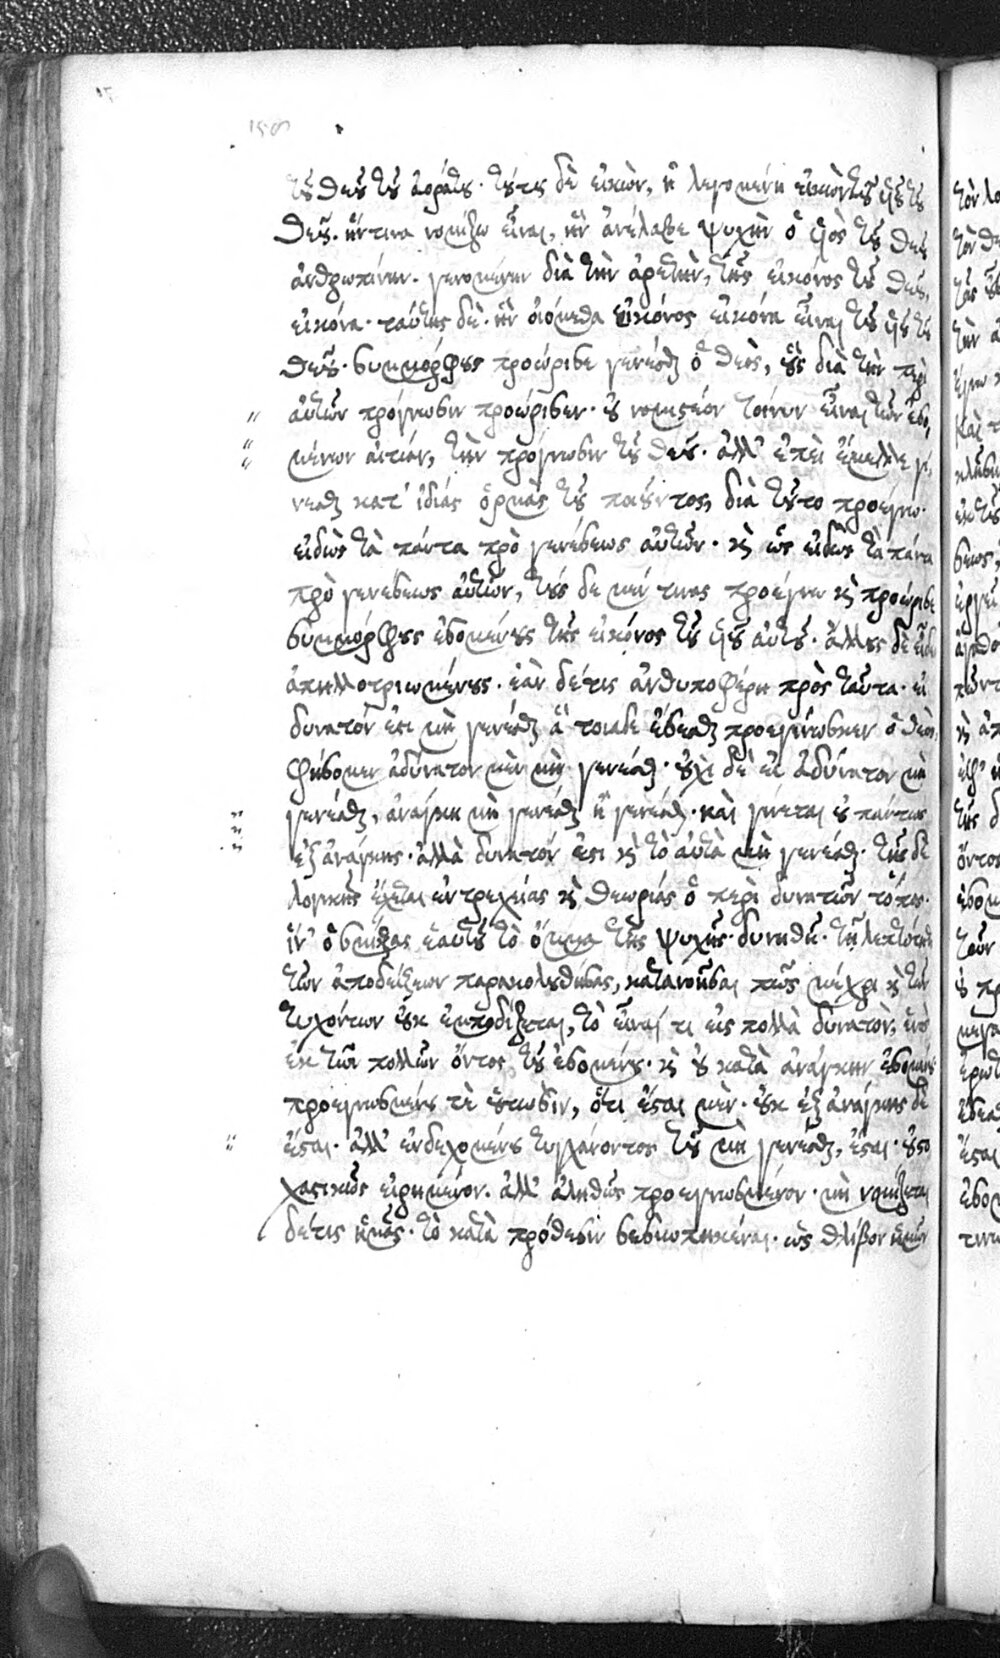 τοῦ θεοῦ τοῦ ἀοράτου. τούτου δὲ εἰκὼν, ἡ λεγομένη εἰκὼν τοῦ υἱοῦ τοῦ
θεοῦ. ἥντινα νομίζω εἶναι, ἣν ἀνέλαβε ψυχὴν ὁ υἱὸς τοῦ θεοῦ
ἀνθρωπίνην. γενομένην διὰ τὴν ἀρετὴν, τῆς εἰκόνος τοῦ θεοῦ,
εἰκόνα. ταύτης δὲ. ἣν οἰόμεθα εἰκόνος εἰκόνα εἶναι τοῦ υἱοῦ τοῦ
θεοῦ. συμμόρφους προώρισε γενέσθαι ὁ θεὸς, οὓς διὰ τὴν περὶ
αὐτῶν πρόγνωσιν προώρισεν. οὐ νομιστέον τοίνυν εἶναι τῶν ἐσο,
μένων αἰτίαν, τὴν πρόγνωσιν τοῦ θεοῦ. ἀλλ' ἐπεὶ ἔμελλε γί,
νεσθαι κατ' ἰδίας ὁρμὰς τοῦ ποιοῦντος, διὰ τοῦτο προέγνω.
εἰδὼς τὰ πάντα πρὸ γενέσεως αὐτῶν. καὶ ὡς εἰδὼς τὰ πάντα
πρὸ γενέσεως αὐτῶν, τούς δε μέν τινας προέγνω καὶ προώρισε
συμμόρφους ἐσομένους τῆς εἰκόνος τοῦ υἱοῦ αὐτοῦ. ἄλλους δὲ εἶδεν
ἀπηλλοτριωμένους. ἐὰν δέ τις ἀνθυποφέρῃ πρὸς ταῦτα. εἰ
δυνατόν ἐστι μὴ γενέσθαι ἃ τοιάδε ἔσεσθαι προεγίνωσκεν ὁ θεὸς,
φήσομεν ἀδύνατον μὲν μὴ γενέσθαι. οὐχὶ δὲ εἰ ἀδύνατον μὴ
γενέσθαι, ἀνάγκη μὴ γενέσθαι ἢ γενέσθαι. καὶ γίνεται οὐ πάντως
ἐξ ἀνάγκης. ἀλλὰ δυνατόν ἐστι καὶ τὸ αὐτὰ μὴ γενέσθαι. τῆς δὲ
λογικῆς ἔχεται ἐντρεχείας καὶ θεωρίας ὁ περὶ δυνατῶν τόπος.
ἵν' ὁ σμήξας ἑαυτοῦ τὸ ὄμμα τῆς ψυχῆς. δυνηθῇ. τῇ λεπτότητι
τῶν ἀποδείξεων παρακολουθήσας, κατανοῆσαι πῶς μέχρι καὶ τῶν
τυχόντων οὐκ ἐμποδίζεται, τὸ εἶναί τι εἰς πολλὰ δυνατὸν, ἑνὸς
ἐκ τῶν πολλῶν ὄντος τοῦ ἐσομένου. καὶ οὐ κατὰ ἀνάγκην ἐσομένου.
προεγνωσμένου τὲ οὕτωσὶν, ὅτι ἔσται μὲν. οὐκ ἐξ ἀνάγκης δὲ
ἔσται. ἀλλ' ἐνδεχομένου τυγχάνοντος τοῦ μὴ γενέσθαι, ἔσται. οὐ στο
χαστικῶς εἰρημένον. ἀλλ' ἀληθῶς προεγνωσμένον. μὴ νομιζέτω
δέ τις ἡμᾶς. τὸ κατὰ πρόθεσιν σεσιωπηκέναι. ὡς θλῖβον ἡμῶν